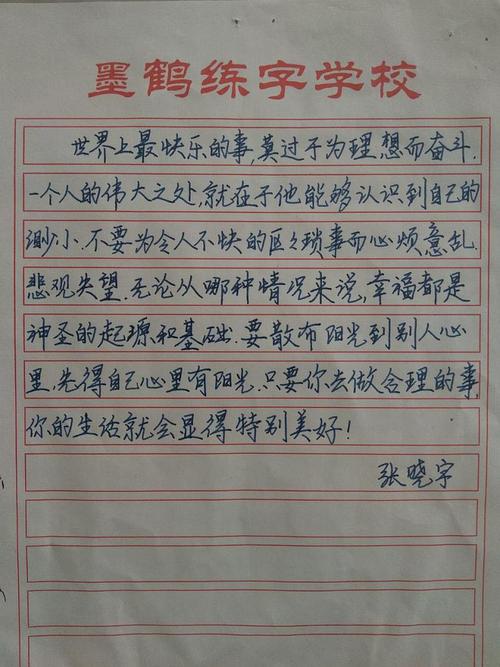 墨鹤练字学校
世界上最快乐的事,莫过于为理想而奋斗.
一个人的伟大之处,就在于他能够认识到自己的
渺小.不要为令人不快的区区琐事而心烦意乱.
悲观失望.无论从哪种情况来说,幸福都是
神圣的起源和基础.要散布阳光到别人心
里,先得自己心里有阳光.只要你去做合理的事,
你的生活就会显得特别美好!
张晓宇